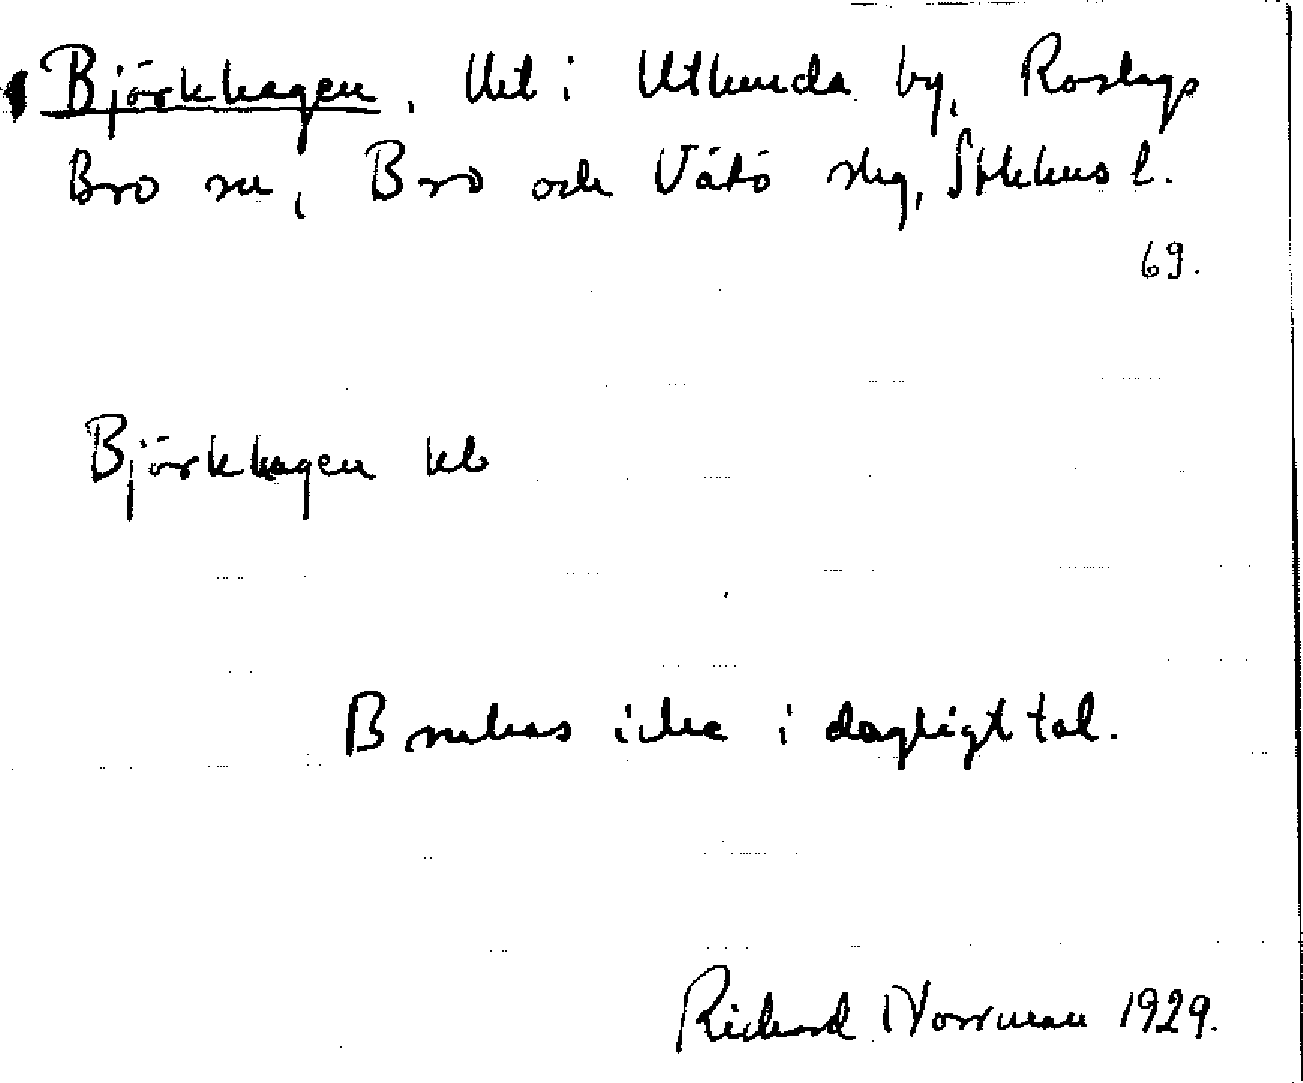 Björkhagen, Utl i Utlunda by, Roslags
Bro sn, Bro och Vätö slg, Sthlms l.
69.
Björkhagen kb
Brukas icke i dagligt tal.
Richard Norrman 1929.